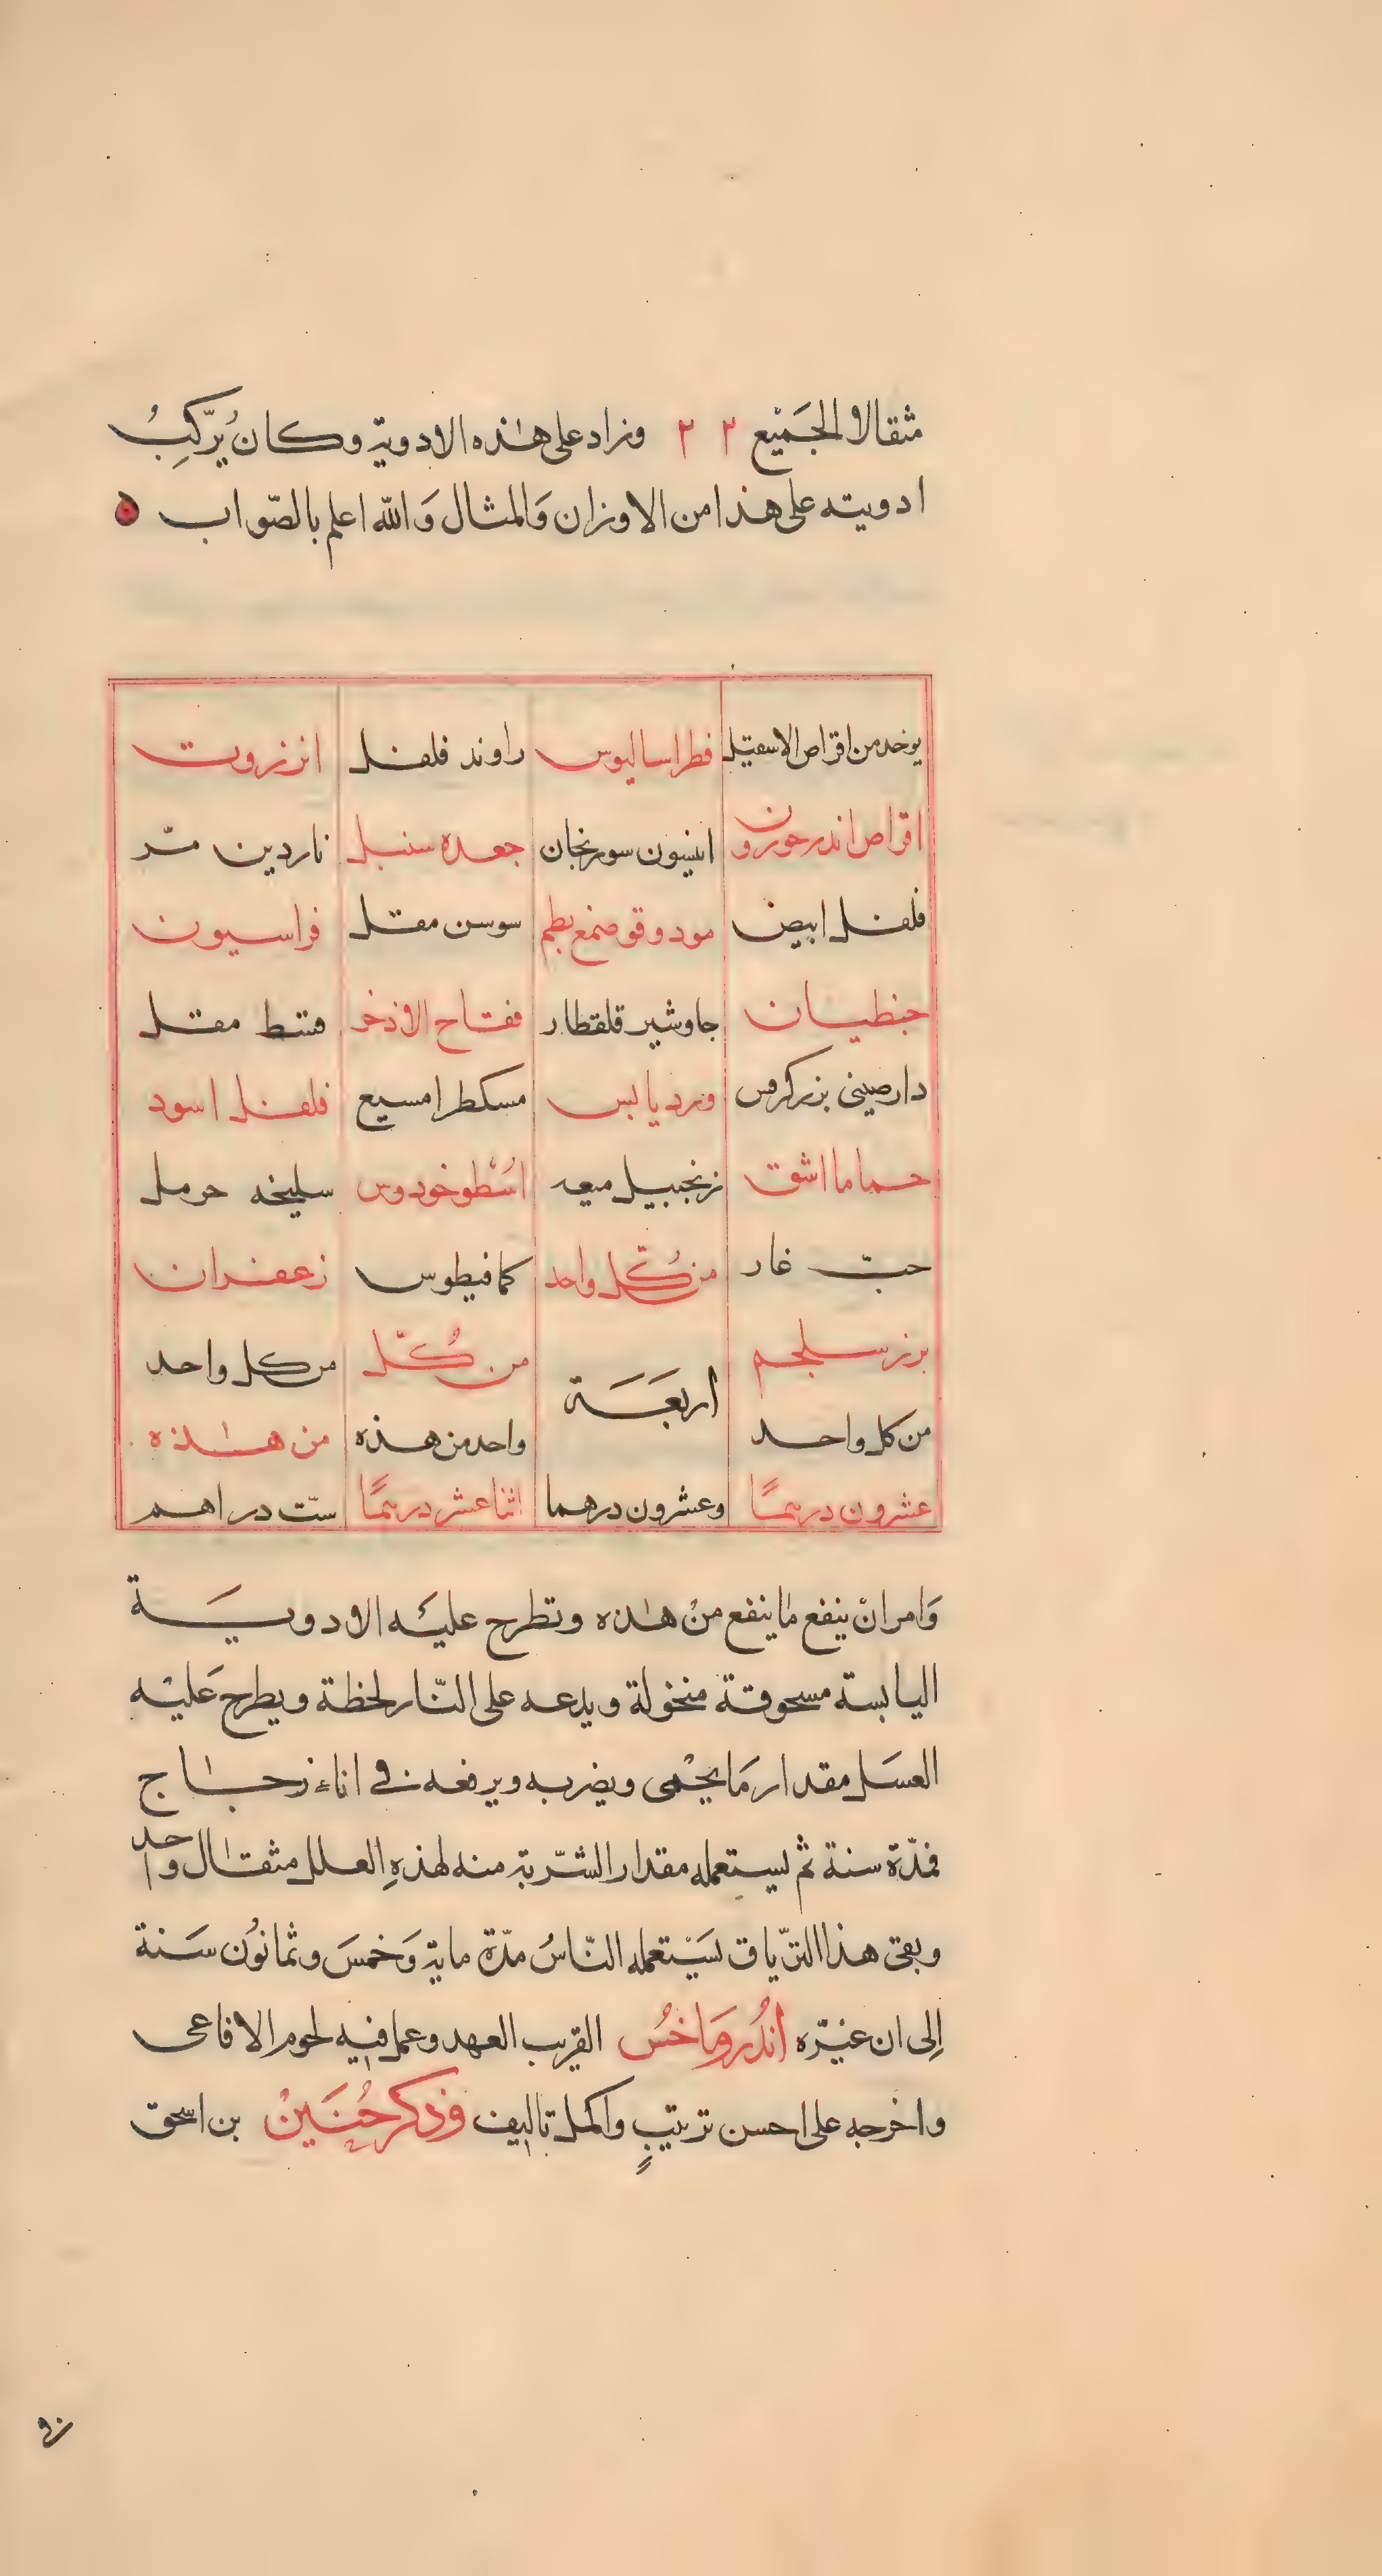 مثقالا الجَميْع ٢ ٢ وزاد على هٰذه الادوية وكان يُرّكِبُ
ادويته على هذا من الاوزان وَالمثال وَالله اعلم بالصّواب ه
يوخد من اقراص الاسقيل | فطراساليوس | راوند فلفل | انزروت
اقراص اندرحورون | انيسون سورنجان | جعده سنبل | ناردين مرّ
فلفل ابيض | مودوقو صمغ بطم | سوسن مقل | فراسيون
جنطيان | جاوشير قلقطار | فقاح الاذخر | قسط مقل
دارصينى بزركرفس | ورد يابس | مسكطرامسيع | فلفل اسود
حماما اشق | زنجبيل ميعه | اسْطوخودوس | سليخه حرمل
حبّ غار | من كُلّ واحد | كمافيطوس | زعفران
بزر سلجم | اربعَة | من كُلّ | من كل واحد
من كل واحد | واحد من هذه | من هٰذه
عشرون درهمًا | وعشرون درهما | اثنا عشر درهمًا | ستّ دراهم
وَامر انْ ينفع مٰا ينفع منْ هٰذه وتطرح عليَه الادويَة
اليابسة مسحوقة منخولة ويدعه على النّار لحظة ويطرح عَليْه
العسَل مقدار مَا يحْمى ويضربه ويرفعه فى اناء زجٰاج
فمدّة سنة ثم يستعمله مقدار الشّربة منه لهذهِ العلل مثقال واحد
وبقى هذا التّرياق يسَيْتعمله النّاسُ مدّة ماية وَخمسَ وثمانوُن سَنة
اِلى ان غيّره اَندُروَمَاخسُ القريب العهد وعمل فيه لحوم الافاعى
واخرجه على احسن ترتيبٍ واكمل تاليف فذكر حُنَينْ بن اسحق